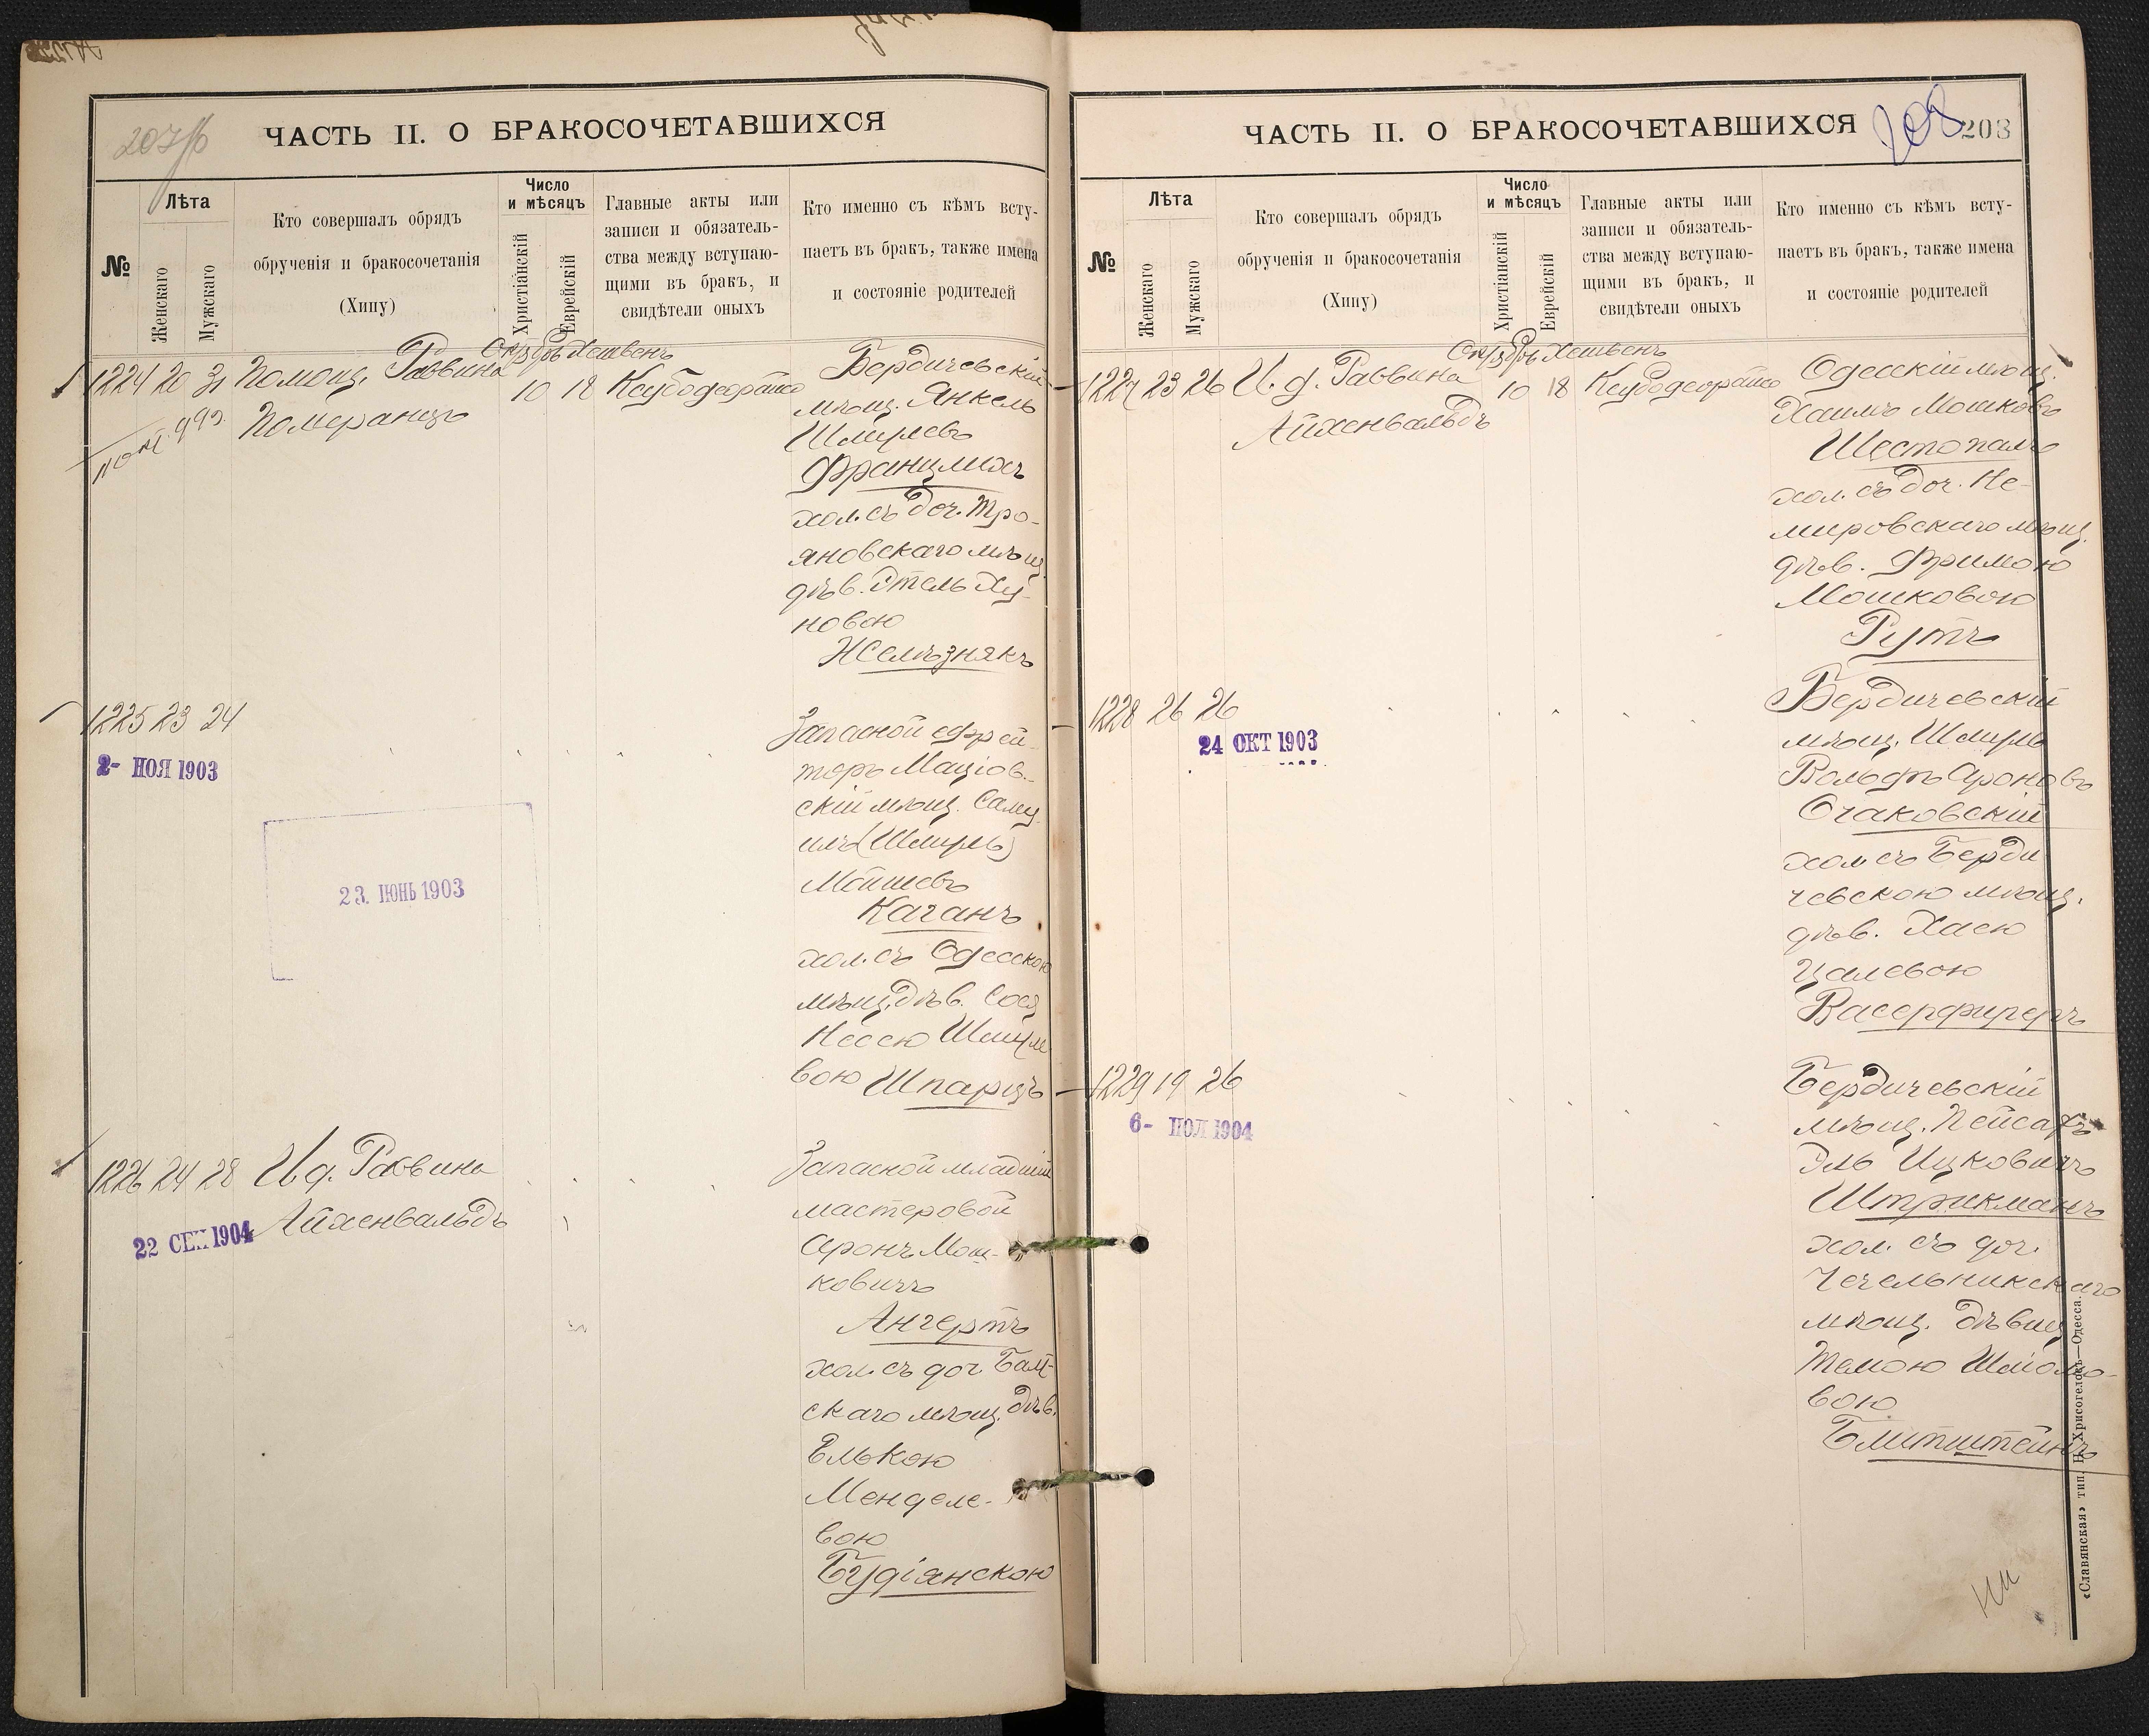 207/б
ЧАСТЬ II. О БРАКОСОЧЕТАВШИХСЯ
№
Лѣта
Женскаго
Мужскаго
Кто совершалъ обрядъ
обрученія и бракосочетанія
(Хипу)
Число
и мѣсяцъ
Христіанскій
Еврейскій
Главные акты или
записи и обязатель-
ства между вступаю-
щими въ бракъ, и
свидѣтели оныхъ
Кто именно съ кѣмъ всту-
паетъ въ бракъ, также имена
и состояніе родителей
1224 20 31 Помощ. Раввина
Померанцъ
Октябрь Хешвенъ
10 18
Бердичевскій
мѣщ. Янкель
Шмулевъ
Францмахъ
хол. съ доч. Тро-
яновскаго мѣщ.
дѣв. Этель Ху-
новою
Желѣзнякъ
1225 23 24
2- НОЯ 1903
23. ІЮНЬ 1903
Запасной ефрей-
торъ Маціов-
скій мѣщ. Саму-
илъ (Шмуль)
Мойшевъ
Каганъ
хол. съ Одесскою
мѣщ. дѣв. Сосд
Нессю Шмуле
вою Шпарцъ
1226 24 28 И. д. Раввина
Айхенвальдъ
22 СЕН 1904
Запасной младшій
мастеровой
Аронъ Мош-
ковичъ
Ангертъ
хол. съ доч. Балт-
скаго мѣщ. дѣв.
Елькою
Менделе-
вою
Будіянскою
ЧАСТЬ II. О БРАКОСОЧЕТАВШИХСЯ
208
203
№
Лѣта
Женскаго
Мужскаго
Кто совершалъ обрядъ
обрученія и бракосочетанія
(Хипу)
Число
и мѣсяцъ
Христіанскій
Еврейскій
Главные акты или
записи и обязатель-
ства между вступаю-
щими въ бракъ, и
свидѣтели оныхъ
Кто именно съ кѣмъ всту-
паетъ въ бракъ, также имена
и состояніе родителей
1227 23 26 И. д. Раввина
Айхенвальдъ
Октябрь Хешвенъ
10 18
Одесскій мѣщ.
Хаимъ Мошковъ
Шестопалъ
хол. съ доч. Не-
мировскаго мѣщ.
дѣв. Фримою
Мошковою
Рутъ
1228 26 26
24 ОКТ 1903
Бердичевскій
мѣщ. Шмуль
Вольфъ Ароновъ
Очаковскій
хол. съ Берди
чевскою мѣщ.
дѣв. Хаею
Цалевою
Васерфиреръ
1229 19 26
6- ІЮЛ 1904
Бердичевскій
мѣщ. Пейсахъ
Эль Ицковичъ
Штрикманъ
хол. съ доч.
Чечельникскаго
мѣщ. дѣвиц
Темою Шлiомо-
вою
Блитштейнъ
«Славянская» тип. Н. Хрисогелосъ—Одесса.